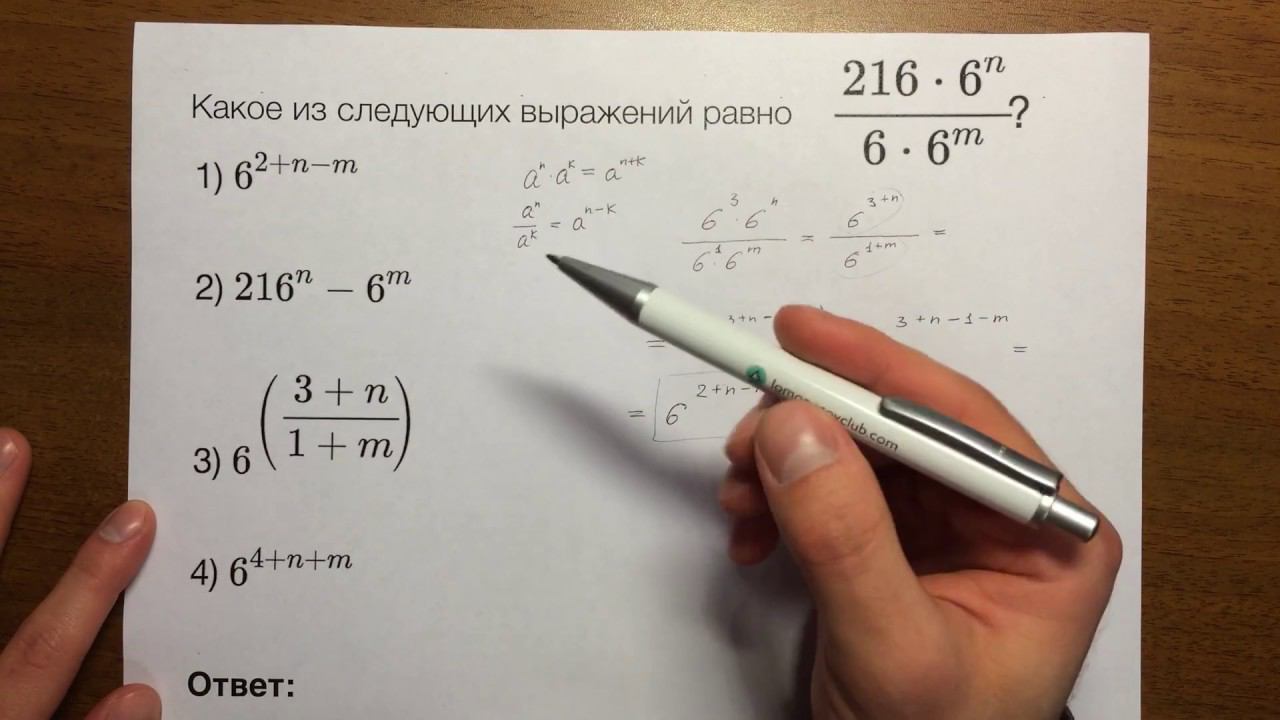 Какое из следующих выражений равно \frac{216 \cdot 6^n}{6 \cdot 6^m}?
1) 6^{2+n-m}
a^n \cdot a^k = a^{n+k}
\frac{a^n}{a^k} = a^{n-k}
\frac{6^3 \cdot 6^n}{6^1 \cdot 6^m} = \frac{6^{3+n}}{6^{1+m}} =
2) 216^n - 6^m
= 3+n- 3+n-1-m =
= 6^{2+n-
3) 6^{\left(\frac{3+n}{1+m}\right)}
4) 6^{4+n+m}
Ответ: